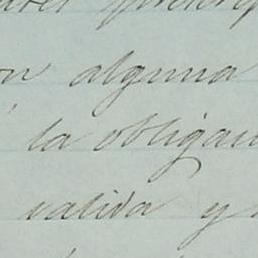 on alguna
la obligaci
valida y